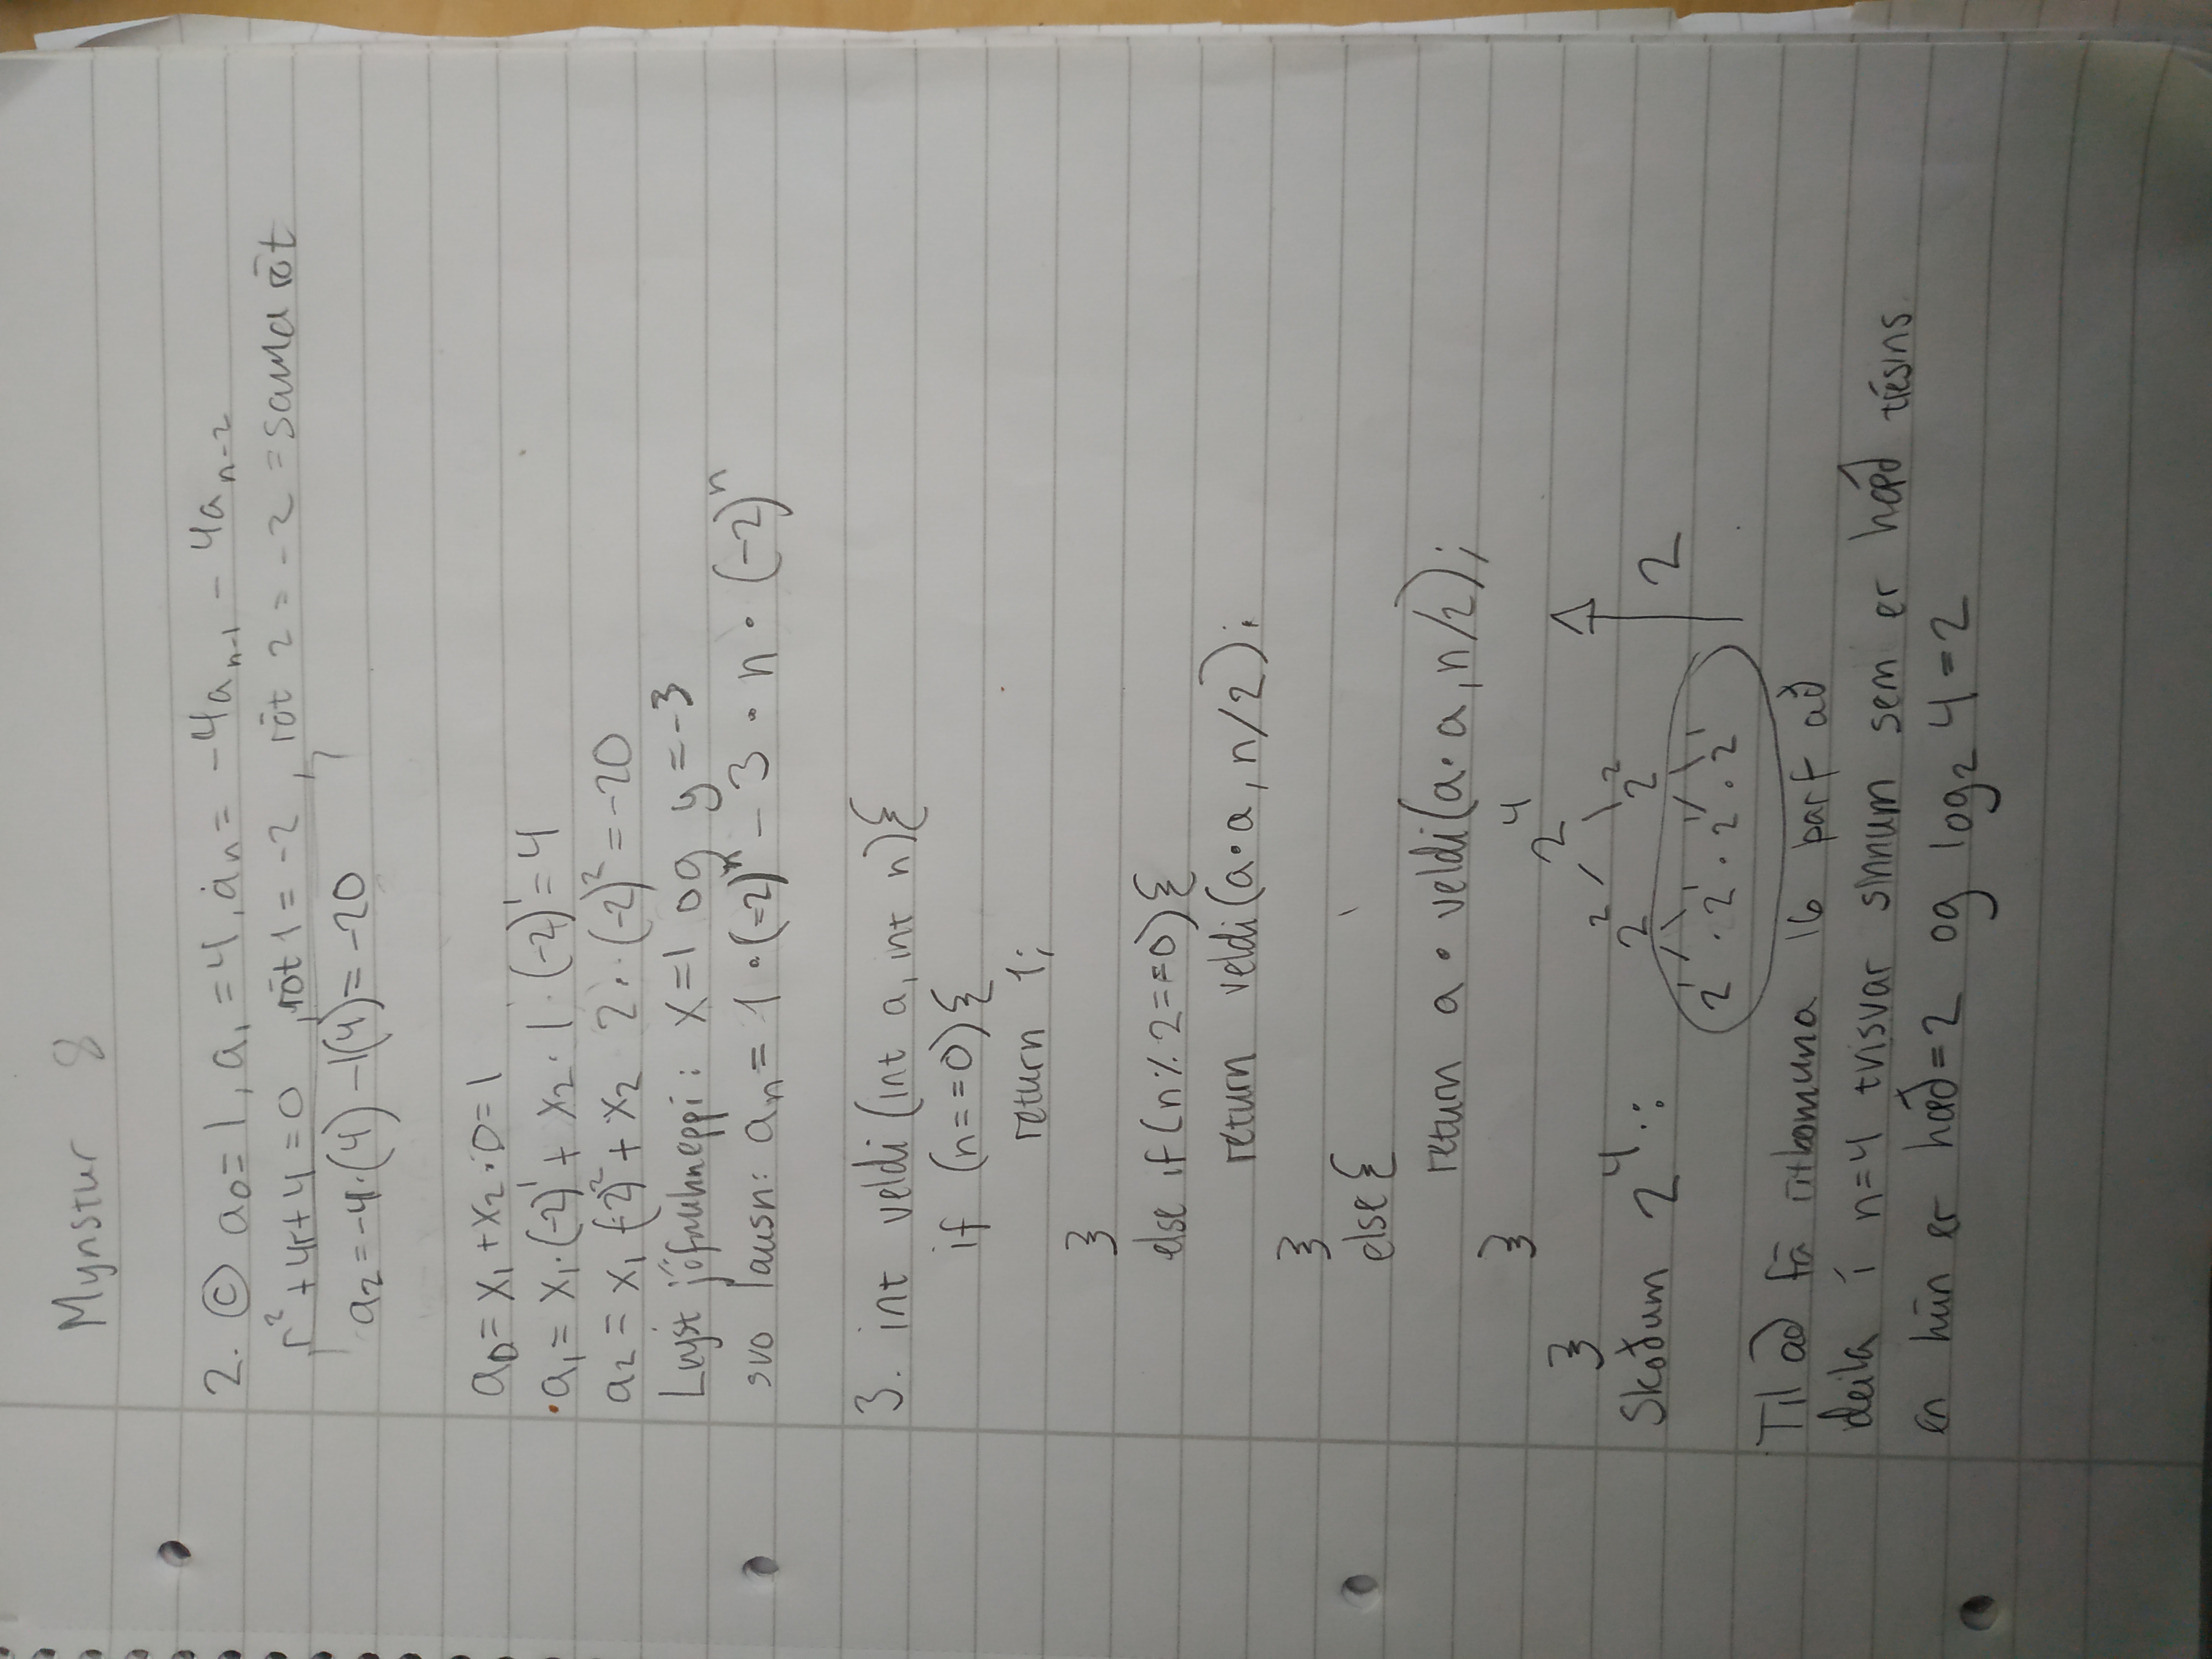 Mynstur 8
2. ⓒ a₀=1, a₁=4, aₙ= -4aₙ₋₁ - 4aₙ₋₂
r²+4r+4=0, rót 1 = -2, rót 2 = -2 = sama rót
a₂=-4·(4)-1(4)=-20
a₀= x₁+x₂·0=1
a₁= x₁·(-2)¹ + x₂·1·(-2)¹=4
a₂= x₁(-2)²+x₂ 2·(-2)²=-20
Leyst jöfnuhneppi: x=1 og y=-3
svo lausn: aₙ= 1·(-2)ⁿ-3·n·(-2)ⁿ
3. int veldi(int a, int n){
if (n==0){
return 1;
}
else if(n%2==0){
return veldi(a·a, n/2);
}
else{
return a·veldi(a·a, n/2);
}
}
2⁴
2² 2²
Skoðum 2⁴: 2
2¹·2¹·2¹·2¹
Til að fá útkomuna 16 þarf að
deila í n=4 tvisvar sinnum sem er hæð trésins
en hún er hæð=2 og log₂ 4=2